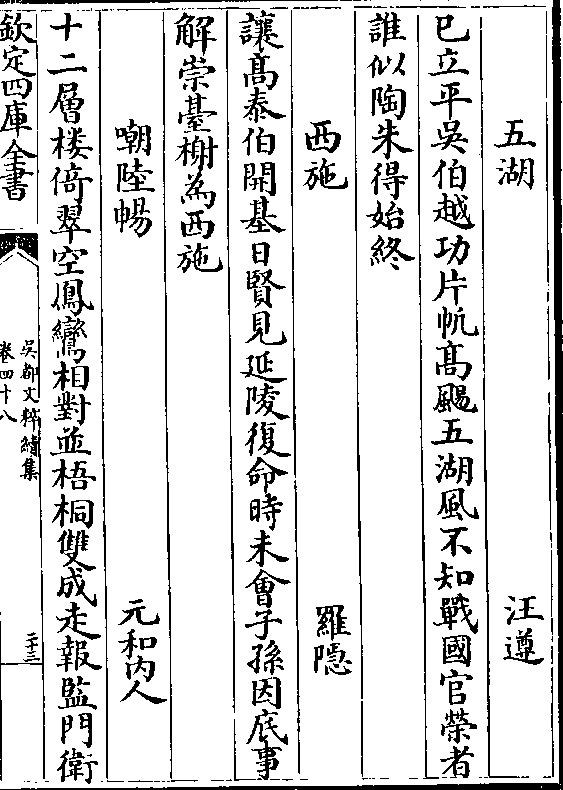 五湖 汪遵
已立平吳伯越功片帆髙颺五湖風不知戰國官榮者
誰似陶朱得始終
西施 羅隠
讓髙泰伯開基日賢見延陵復命時未會子孫因底事
解崇臺榭為西施
嘲陸暢 元和内人
十二層楼倚翠空鳳鸞相對並梧桐雙成走報監門衛
欽定四庫全書
吳都文粹續集
卷四十八
二十三